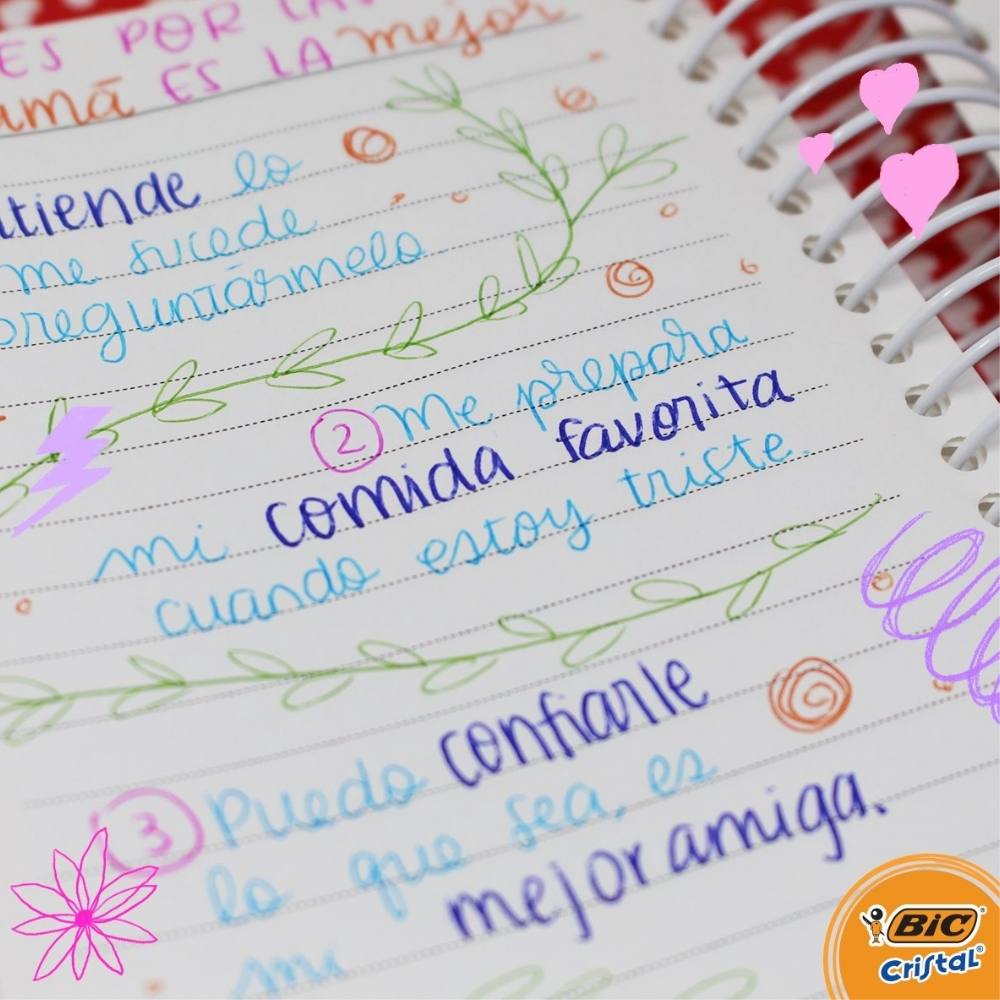 ES POR
amá ES LA mejor
tiende lo
me sucede
preguntármelo
2 Me prepara
mi comida favorita
cuando estoy triste.
3 Puedo confiarle
lo que sea, es
mi mejor amiga.
BIC®
Cristal®